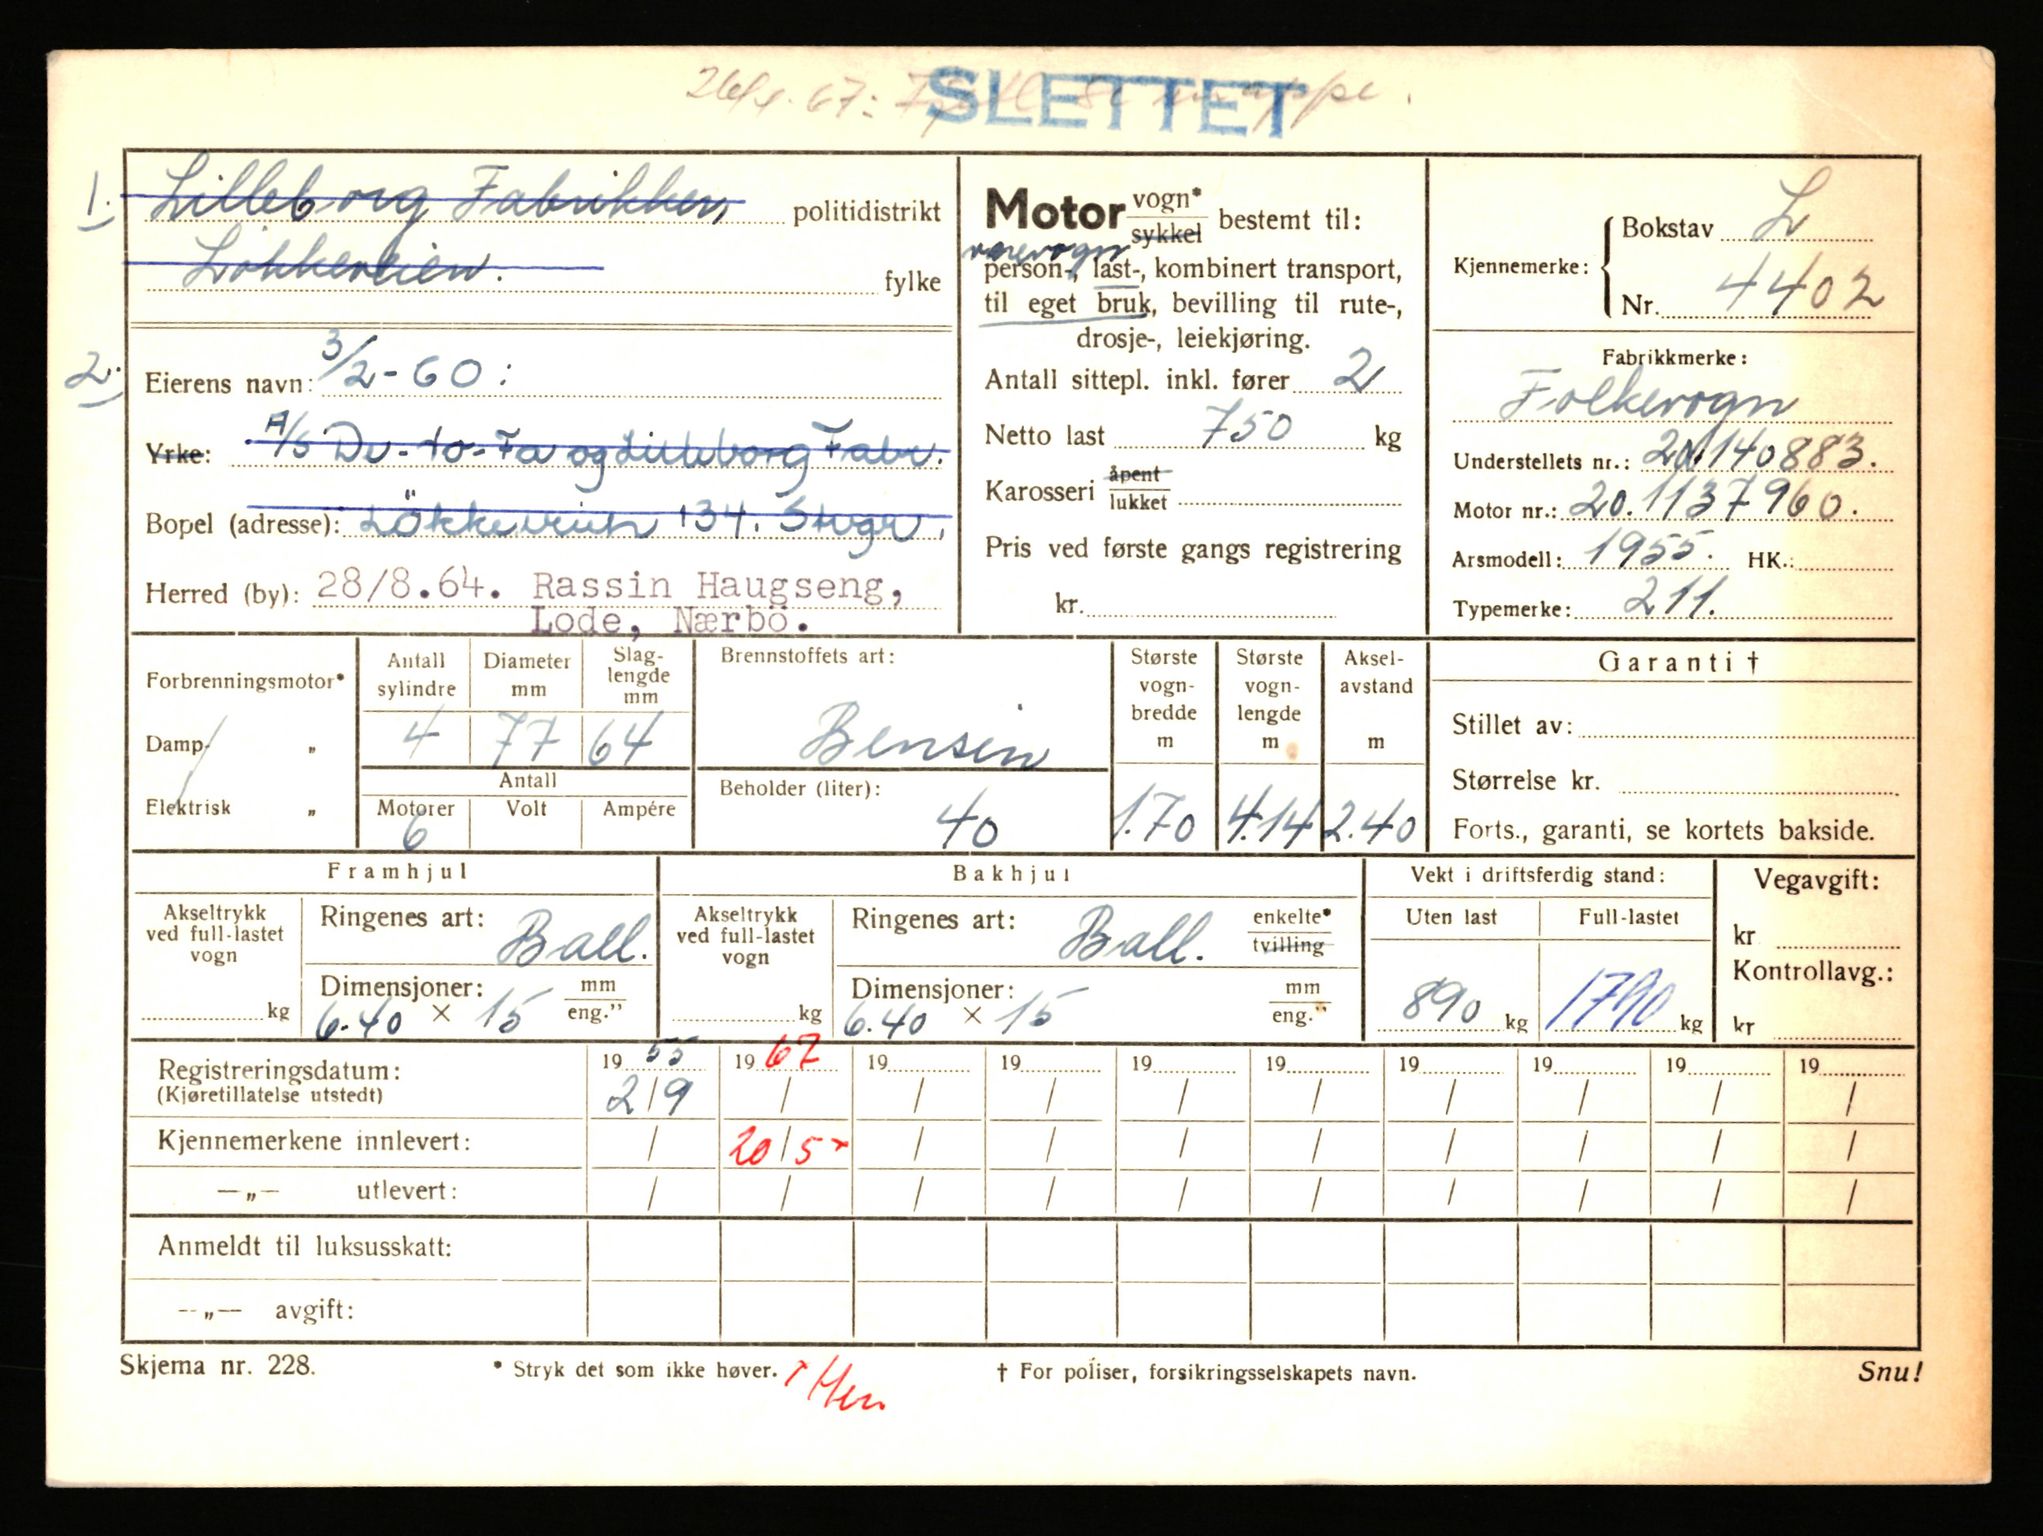 26/4.67:
SLETTET
1. Lilleborg Fabrikker, politidistrikt
Løkkeveien. fylke
2. Eierens navn: 3/2-60:
Yrke: A/S De-No-Fa og Lilleborg Fabr.
Bopel (adresse): Løkkeveien 134. Svgr.
Herred (by): 28/8.64. Rassin Haugseng,
Lode, Nærbö.
Motor vogn* sykkel bestemt til:
varevogn
person-, last-, kombinert transport,
til eget bruk, bevilling til rute-,
drosje-, leiekjøring.
Antall sittepl. inkl. fører 2
Netto last 750 kg
Karosseri åpent lukket
Pris ved første gangs registrering
kr.
Kjennemerke: Bokstav L
Nr. 4402
Fabrikkmerke:
Folkevogn
Understellets nr.: 20.140883.
Motor nr.: 20.1137960.
Arsmodell: 1955. HK.:
Typemerke: 211.
Forbrenningsmotor*
Damp- „
Elektrisk „
Antall sylindre 4
Diameter mm 77
Slaglengde mm 64
Antall
Motorer 6 Volt Ampére
Brennstoffets art:
Bensin
Beholder (liter):
40
Største vogn-bredde m 1.70
Største vogn-lengde m 4.14
Aksel-avstand m 2.40
Garanti †
Stillet av:
Størrelse kr.
Forts., garanti, se kortets bakside.
Framhjul
Akseltrykk ved full-lastet vogn
kg
Ringenes art: Ball.
Dimensjoner: mm eng."
6.40 × 15
Bakhjul
Akseltrykk ved full-lastet vogn
kg
Ringenes art: Ball. enkelte* tvilling
Dimensjoner: mm eng."
6.40 × 15
Vekt i driftsferdig stand:
Uten last Full-lastet
890 kg 1790 kg
Vegavgift:
kr
Kontrollavg.:
kr
Registreringsdatum: 19 55 19 67 19 19 19 19 19 19 19 19
(Kjøretillatelse utstedt) 2/9 / / / / / / / / /
Kjennemerkene innlevert: / 20/5 / / / / / / / /
—„— utlevert: / / / / / / / / / /
Anmeldt til luksusskatt:
—„— avgift:
Skjema nr. 228.
* Stryk det som ikke høver.
† For poliser, forsikringsselskapets navn.
Snu!